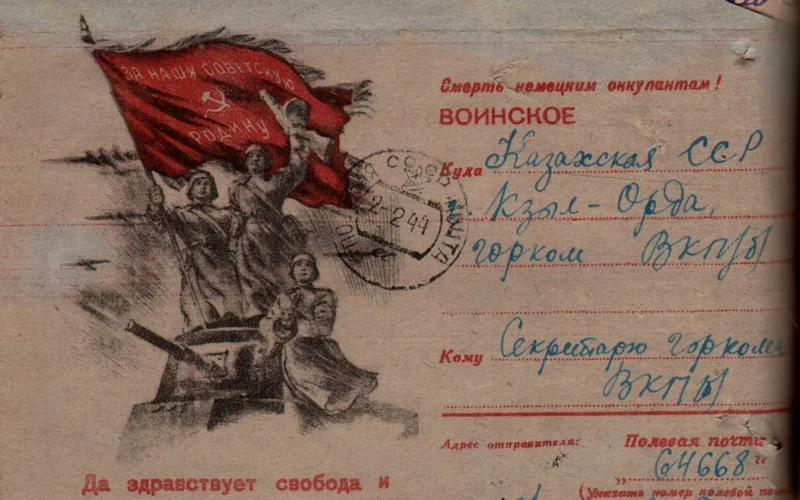 ЗА НАШУ СОВЕТСКУЮ
РОДИНУ
Смерть немецким оккупантам!
ВОИНСКОЕ
Куда Казахская ССР
г. Кзыл-Орда,
горком ВКП/б/
СССР ПОЧТА
2-2.44
Кому Секретарю горкома
ВКП/б/
Адрес отправителя: Полевая почта
„64668“
(Указать номер полевой
Да здравствует свобода и